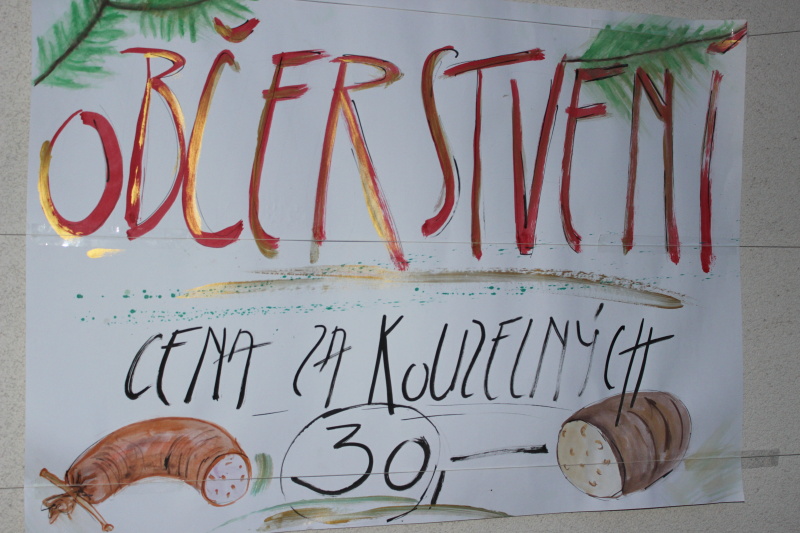 OBČERSTVENÍ
CENA ZA KOUZELNÝCH
30,—